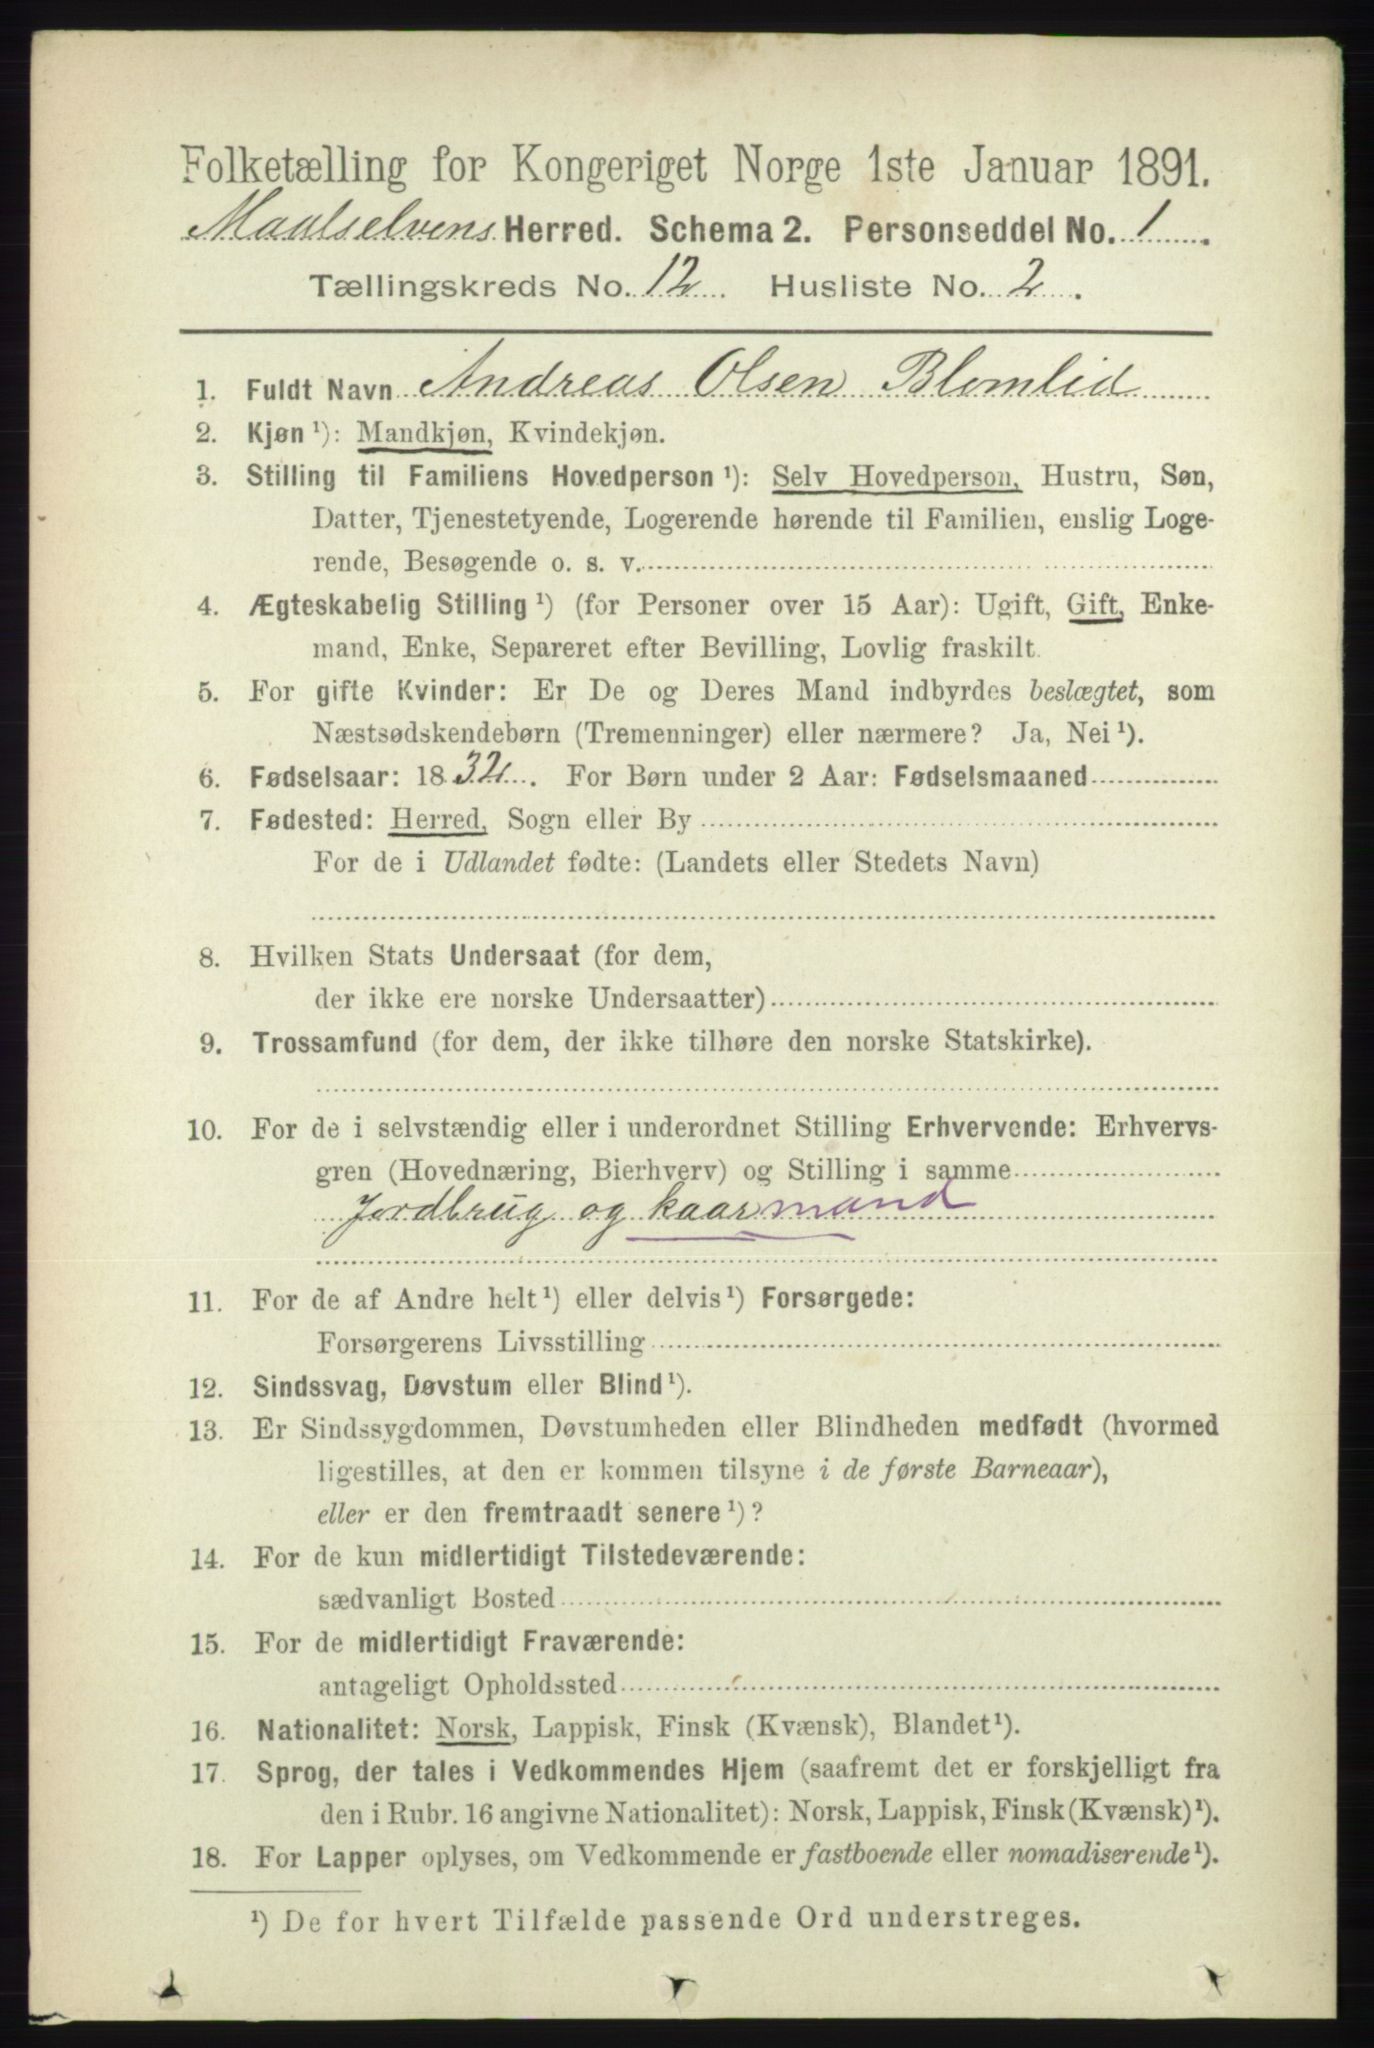 Folketælling for Kongeriget Norge 1ste Januar 1891.
Maalselvens Herred. Schema 2. Personseddel No. 1.
Tællingskreds No. 12. Husliste No. 2.
1. Fuldt Navn Andreas Olsen Blomlid
2. Kjøn ¹): Mandkjøn, Kvindekjøn.
3. Stilling til Familiens Hovedperson ¹): Selv Hovedperson, Hustru, Søn,
Datter, Tjenestetyende, Logerende hørende til Familien, enslig Loge-
rende, Besøgende o. s. v.
4. Ægteskabelig Stilling ¹) (for Personer over 15 Aar): Ugift, Gift, Enke-
mand, Enke, Separeret efter Bevilling, Lovlig fraskilt.
5. For gifte Kvinder: Er De og Deres Mand indbyrdes beslægtet, som
Næstsødskendebørn (Tremenninger) eller nærmere? Ja, Nei ¹).
6. Fødselsaar: 1832. For Børn under 2 Aar: Fødselsmaaned
7. Fødested: Herred, Sogn eller By
For de i Udlandet fødte: (Landets eller Stedets Navn)
8. Hvilken Stats Undersaat (for dem,
der ikke ere norske Undersaatter)
9. Trossamfund (for dem, der ikke tilhøre den norske Statskirke).
10. For de i selvstændig eller i underordnet Stilling Erhvervende: Erhvervs-
gren (Hovednæring, Bierhverv) og Stilling i samme
Jordbrug og kaarmand
11. For de af Andre helt ¹) eller delvis ¹) Forsørgede:
Forsørgerens Livsstilling
12. Sindssvag, Døvstum eller Blind ¹).
13. Er Sindssygdommen, Døvstumheden eller Blindheden medfødt (hvormed
ligestilles, at den er kommen tilsyne i de første Barneaar),
eller er den fremtraadt senere ¹)?
14. For de kun midlertidigt Tilstedeværende:
sædvanligt Bosted
15. For de midlertidigt Fraværende:
antageligt Opholdssted
16. Nationalitet: Norsk, Lappisk, Finsk (Kvænsk), Blandet ¹).
17. Sprog, der tales i Vedkommendes Hjem (saafremt det er forskjelligt fra
den i Rubr. 16 angivne Nationalitet): Norsk, Lappisk, Finsk (Kvænsk) ¹).
18. For Lapper oplyses, om Vedkommende er fastboende eller nomadiserende ¹).
¹) De for hvert Tilfælde passende Ord understreges.